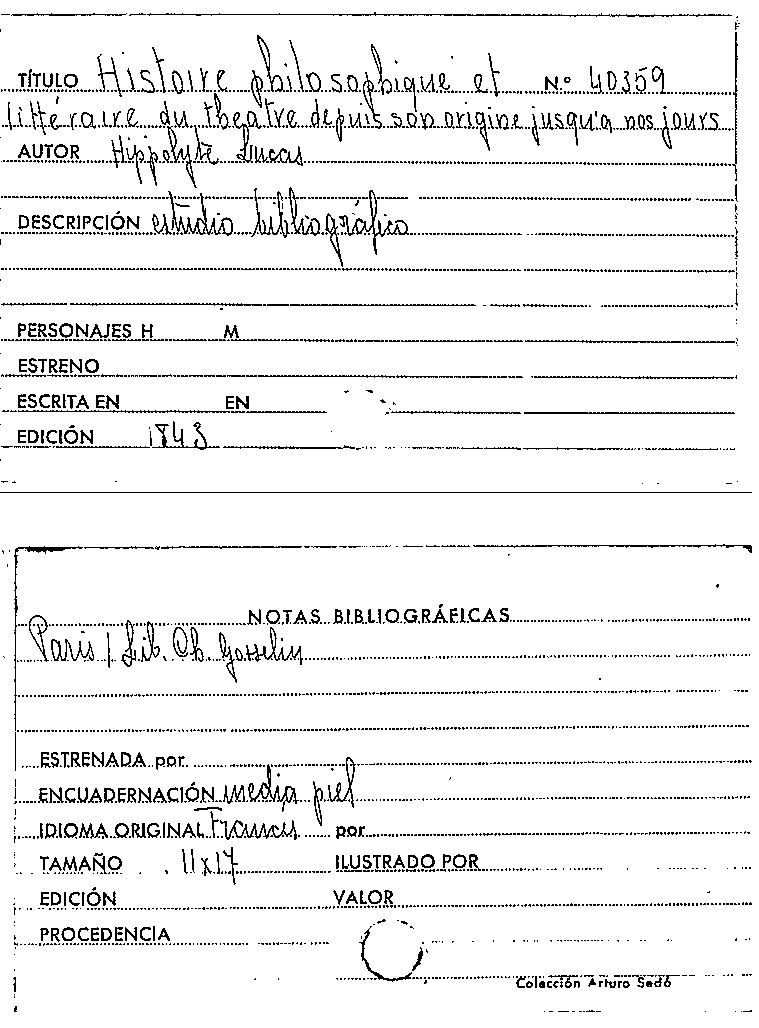 TÍTULO Histoire philosophique et N.º 40359
littéraire du theatre depuis son origine jusqu'a nos jours
AUTOR Hippolyte Lucas
DESCRIPCIÓN estudio bibliográfico
PERSONAJES H M
ESTRENO
ESCRITA EN EN
EDICIÓN 1843
NOTAS BIBLIOGRÁFICAS
Paris / Lib. Ch. Gosselin
ESTRENADA por
ENCUADERNACIÓN media piel
IDIOMA ORIGINAL Francés por
TAMAÑO 11x17 ILUSTRADO POR
EDICIÓN VALOR
PROCEDENCIA
Colección Arturo Sedó